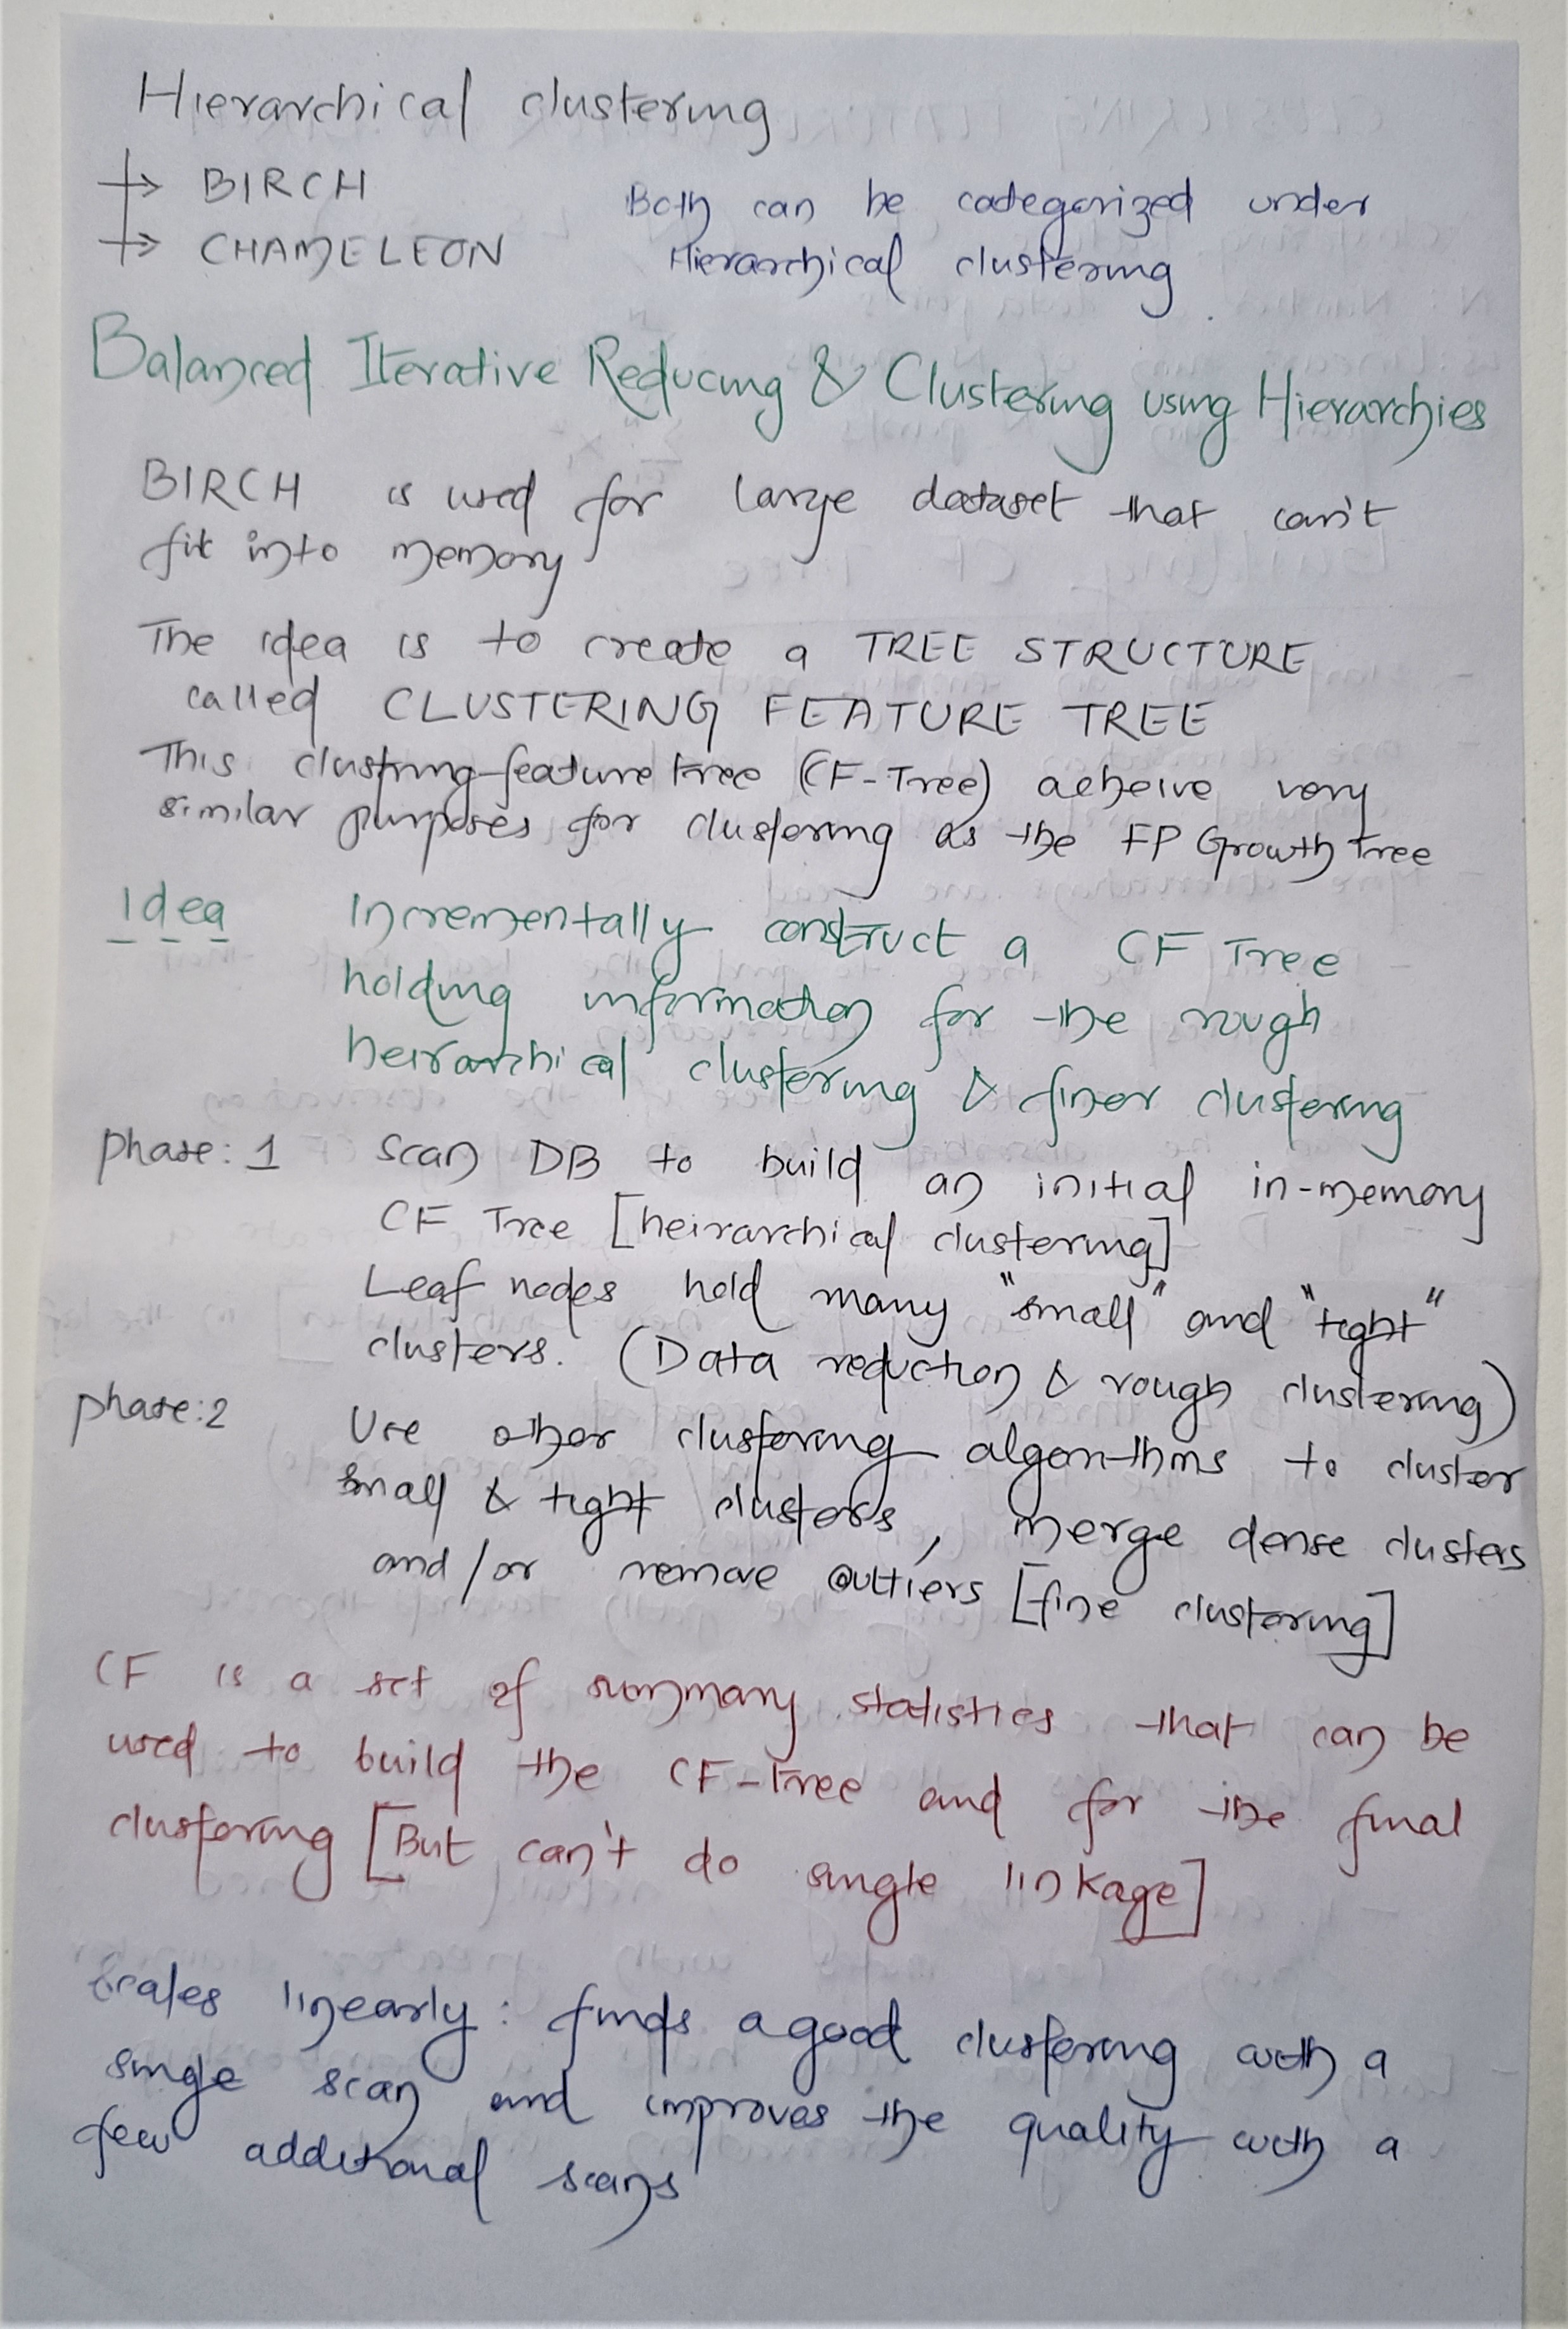 Hierarchical clustering
→ BIRCH
Both can be categorized under
→ CHAMELEON
Hierarchical clustering.
Balanced Iterative Reducing & Clustering using Hierarchies
BIRCH is used for large dataset that can't
fit into memory
The idea is to create a TREE STRUCTURE
called CLUSTERING FEATURE TREE
This clustring feature tree (CF-Tree) acheive very
similar purposes for clustering as the FP Growth Tree
Idea Incrementally construct a CF Tree
holding information for the rough
heirarchical clustering & finer clustering
phase: 1 Scan DB to build an initial in-memory
CF Tree [heirarchical clustering]
Leaf nodes hold many "small" and "tight"
clusters. (Data reduction & rough clustering)
phase:2 Use other clustering algorithms to cluster
small & tight clusters, merge dense clusters
and/or remove outliers [fine clustering]
CF is a set of summary statistics that can be
used to build the CF-Tree and for the final
clustering [But can't do single linkage]
Scales linearly: finds a good clustering with a
single scan and improves the quality with a
few additional scans